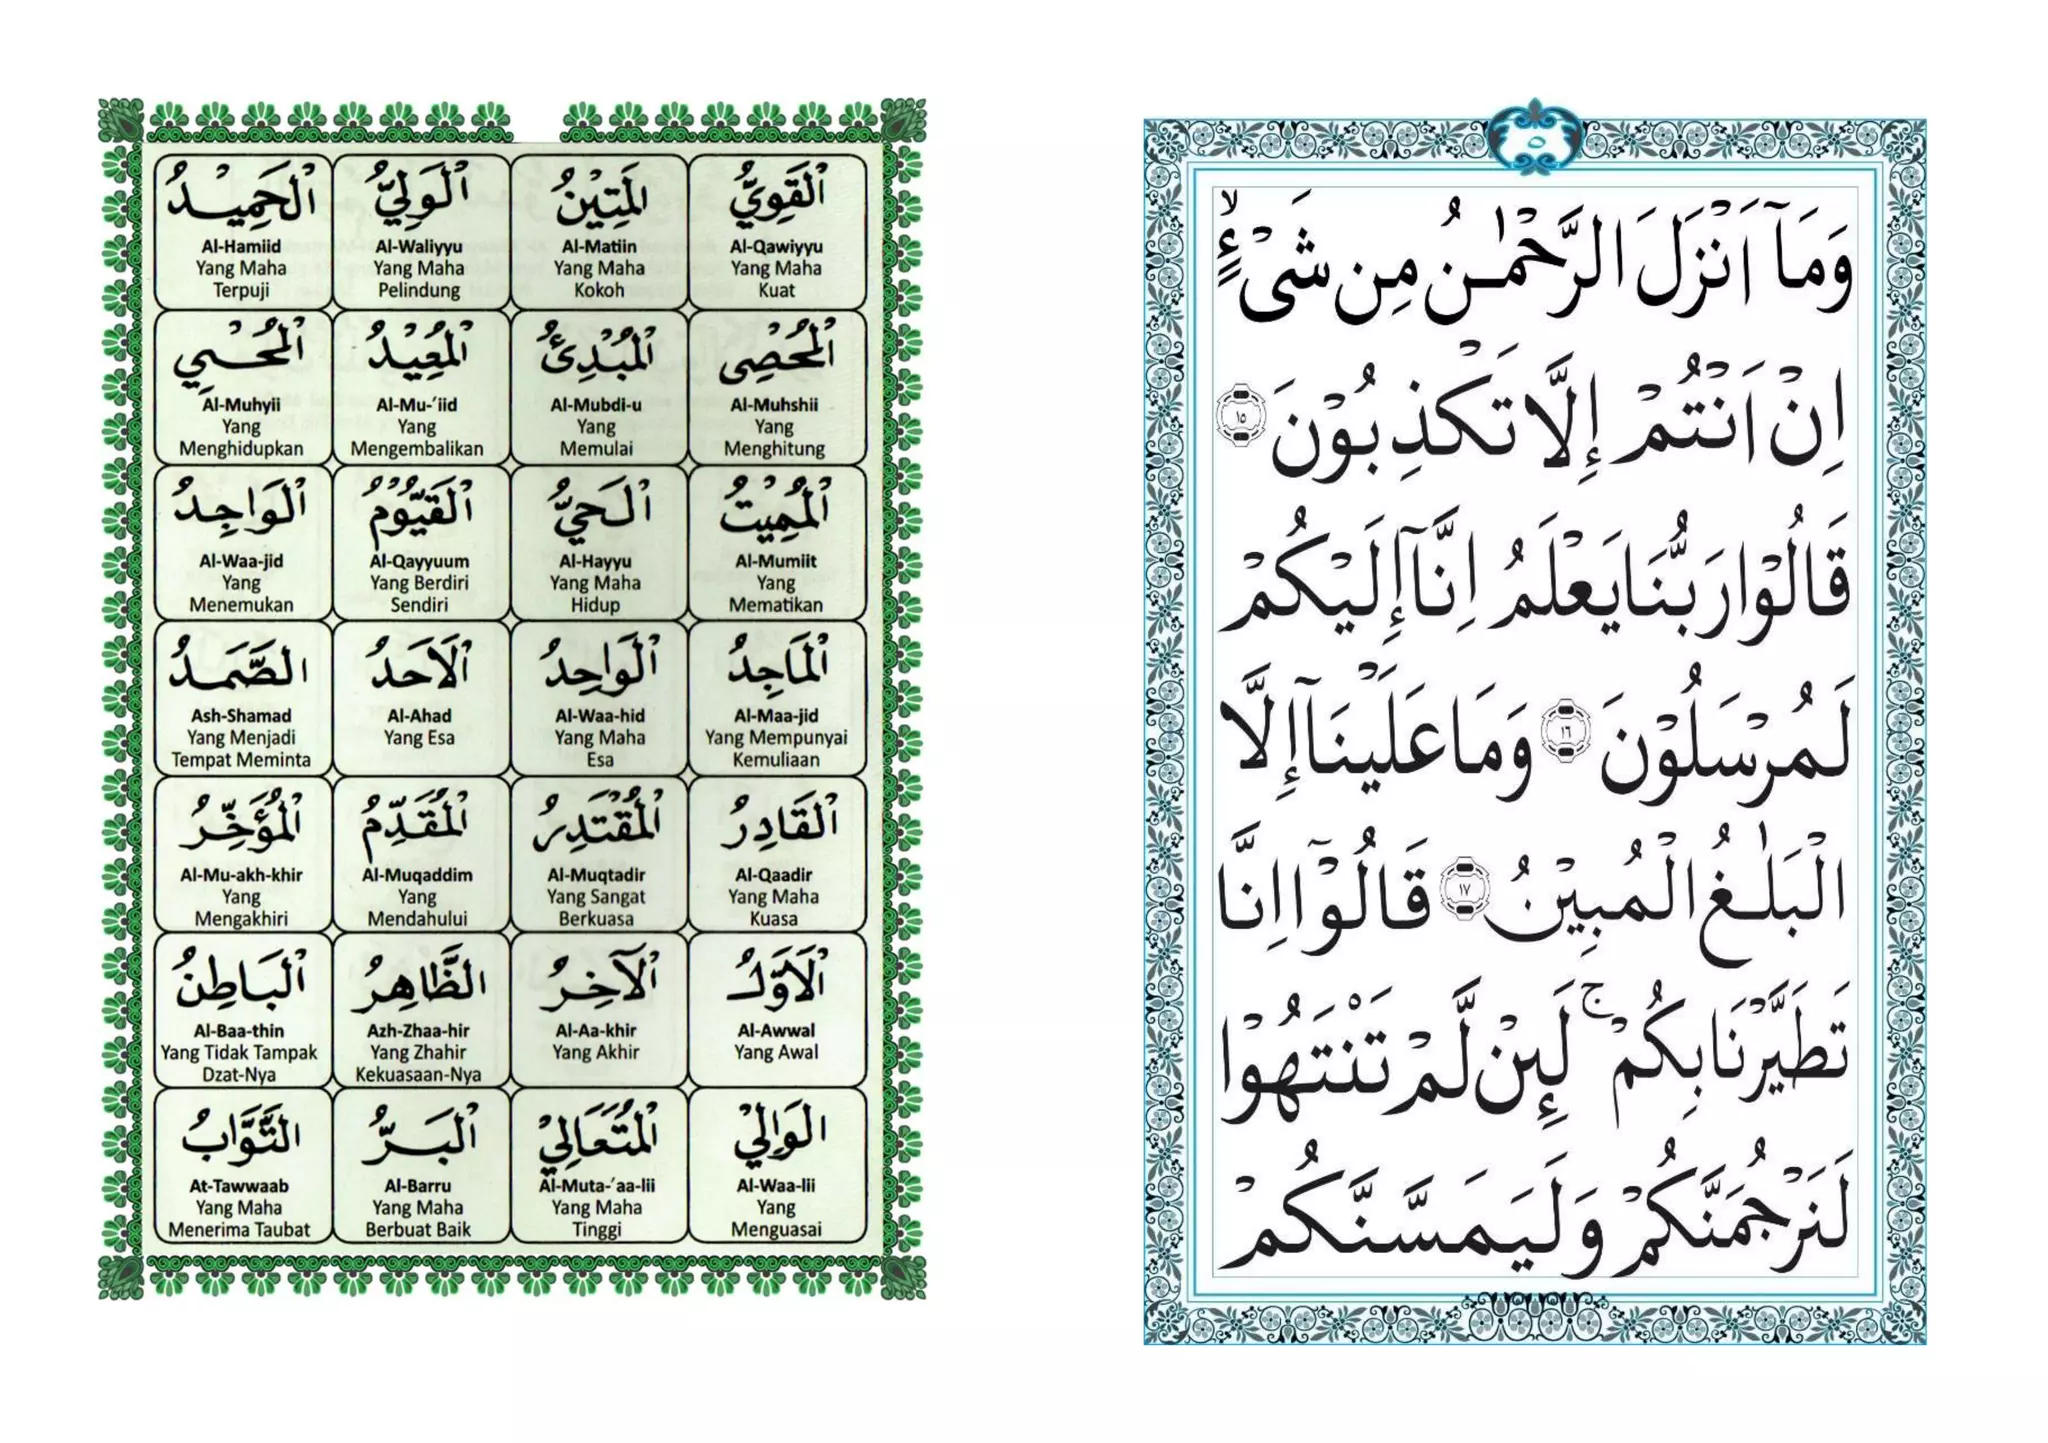 ٥
وَمَآ اَنْزَلَ الرَّحْمٰنُ مِن شَىْءٍۙ
اِنْ اَنْتُمْ إِلَّا تَكْذِبُوْنَ ١٥
قَالُوْا رَبُّنَا يَعْلَمُ اِنَّآ إِلَيْكُمْ
لَمُرْسَلُوْنَ ١٦ وَمَا عَلَيْنَآ إِلَّا
الْبَلٰغُ الْمُبِيْنُ ١٧ قَالُوْٓا اِنَّا
تَطَيَّرْنَا بِكُمْۚ لَئِنْ لَّمْ تَنْتَهُوْا
لَنَرْجُمَنَّكُمْ وَلَيَمَسَّنَّكُمْ
اَلْقَوِيُّ
Al-Qawiyyu
Yang Maha
Kuat
اَلْمَتِيْنُ
Al-Matiin
Yang Maha
Kokoh
اَلْوَلِيُّ
Al-Waliyyu
Yang Maha
Pelindung
اَلْحَمِيْدُ
Al-Hamiid
Yang Maha
Terpuji
اَلْمُحْصِى
Al-Muhshii
Yang
Menghitung
اَلْمُبْدِئُ
Al-Mubdi-u
Yang
Memulai
اَلْمُعِيْدُ
Al-Mu-´iid
Yang
Mengembalikan
اَلْمُحْيِي
Al-Muhyii
Yang
Menghidupkan
اَلْمُمِيْتُ
Al-Mumiit
Yang
Mematikan
اَلْحَيُّ
Al-Hayyu
Yang Maha
Hidup
اَلْقَيُّوْمُ
Al-Qayyuum
Yang Berdiri
Sendiri
اَلْوَاجِدُ
Al-Waa-jid
Yang
Menemukan
اَلْمَاجِدُ
Al-Maa-jid
Yang Mempunyai
Kemuliaan
اَلْوَاحِدُ
Al-Waa-hid
Yang Maha
Esa
اَلْاَحَدُ
Al-Ahad
Yang Esa
الصَّمَدُ
Ash-Shamad
Yang Menjadi
Tempat Meminta
اَلْقَادِرُ
Al-Qaadir
Yang Maha
Kuasa
اَلْمُقْتَدِرُ
Al-Muqtadir
Yang Sangat
Berkuasa
اَلْمُقَدِّمُ
Al-Muqaddim
Yang
Mendahului
اَلْمُؤَخِّرُ
Al-Mu-akh-khir
Yang
Mengakhiri
اَلْاَوَّلُ
Al-Awwal
Yang Awal
اَلْآخِرُ
Al-Aa-khir
Yang Akhir
الظَّاهِرُ
Azh-Zhaa-hir
Yang Zhahir
Kekuasaan-Nya
اَلْبَاطِنُ
Al-Baa-thin
Yang Tidak Tampak
Dzat-Nya
اَلْوَالِيْ
Al-Waa-lii
Yang
Menguasai
اَلْمُتَعَالِيْ
Al-Muta-´aa-lii
Yang Maha
Tinggi
اَلْبَرُّ
Al-Barru
Yang Maha
Berbuat Baik
التَّوَّابُ
At-Tawwaab
Yang Maha
Menerima Taubat